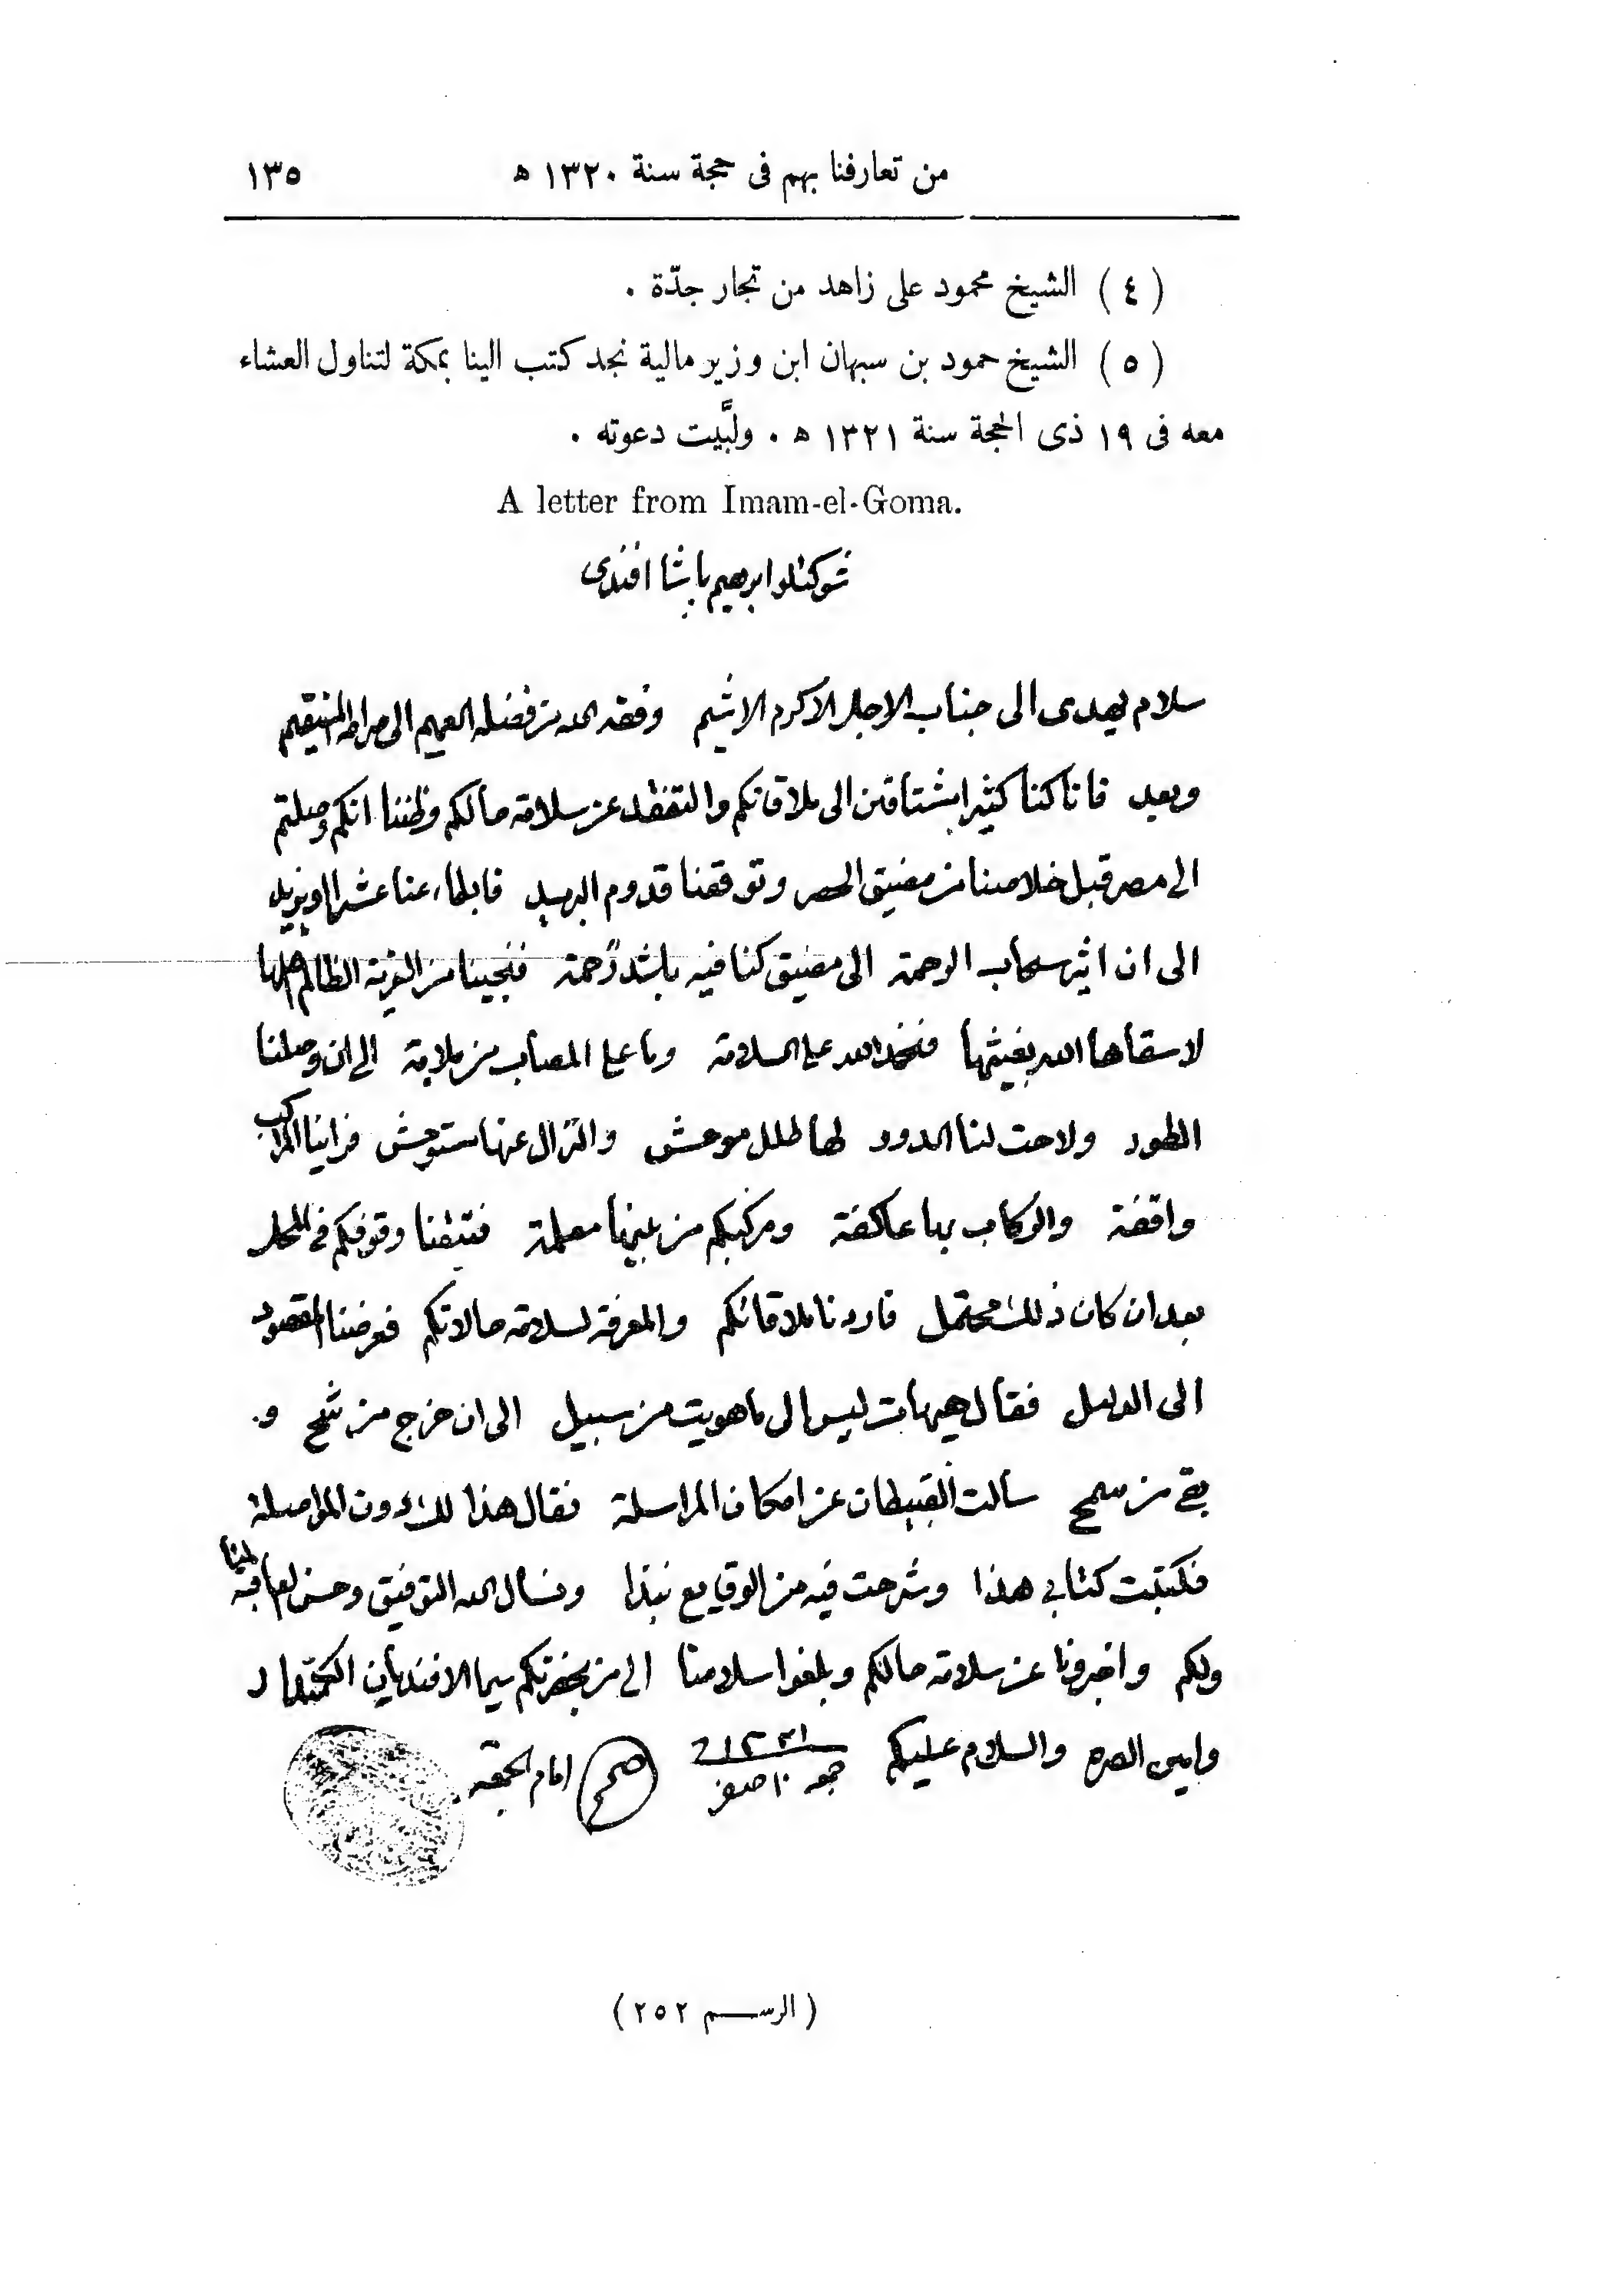 من تعارفنا بهم فى حجة سنة ١٣٢٠ ه ١٣٥
( ٤ ) الشيخ محمود على زاهد من تجار جدّة .
( ٥ ) الشيخ حمود بن سبهان ابن وزير مالية نجد كتب الينا بمكة لتناول العشاء
معه فى ١٩ ذى الحجة سنة ١٣٢١ ه . ولبَّيت دعوته .
A letter from Imam-el-Goma.
شوكتلو ابرهيم باشا افندى
سلام يهدى الى جناب الاجل الاكرم الاشيم وفقه الله من فضله العميم الى صراط المستقيم
وبعد فانا كنا كثيرا مشتاقين الى ملاقاتكم والتفقد عن سلامة حالكم وظننا انكم وصلتم
الى مصر قبل خلاصنا من مضيق الحصر وتوقفنا قدوم البريد فابطاء عنا عشرا او يزيد
الى ان اثير سحاب الرحمة الى مضيق كنا فيه باشد زحمة فنجينا من القرية الظالم اهلها
لا سقاها الله بغيثها فنحمد الله على السلامة وما على المصاب من ملامة الى ان وصلنا
الطور ولاحت لنا الدور لها طلل موحش والنزال عنها مستوحش فراينا المراكب
واقفة والركاب بها عاكفة ومركبكم من بينها معلمة فتيقنا وقوفكم فى المحل
بعد ان كان ذلك محتمل فاردنا ملاقاتكم والمعرفة لسلامة حالاتكم فعرضنا المقصود
الى الدليل فقال هيهات ليس الى ما هويت من سبيل الى ان خرج من شح و
بقى من سمح سالت القبطان عن امكان المراسلة فقال هذا لك دون المواصلة
فكتبت كتابى هذا وشرحت فيه من الوقايع نبذا ونسال الله التوفيق وحسن العاقبة لنا
ولكم واخبرونا عن سلامة حالكم وبلغوا سلامنا الى من بحضرتكم سيما الافنديان
وامين الصره والسلام عليكم ١٣٢١ جمعه ١٠ صفر امام الجمعه
( الرســم ٢٥٢ )